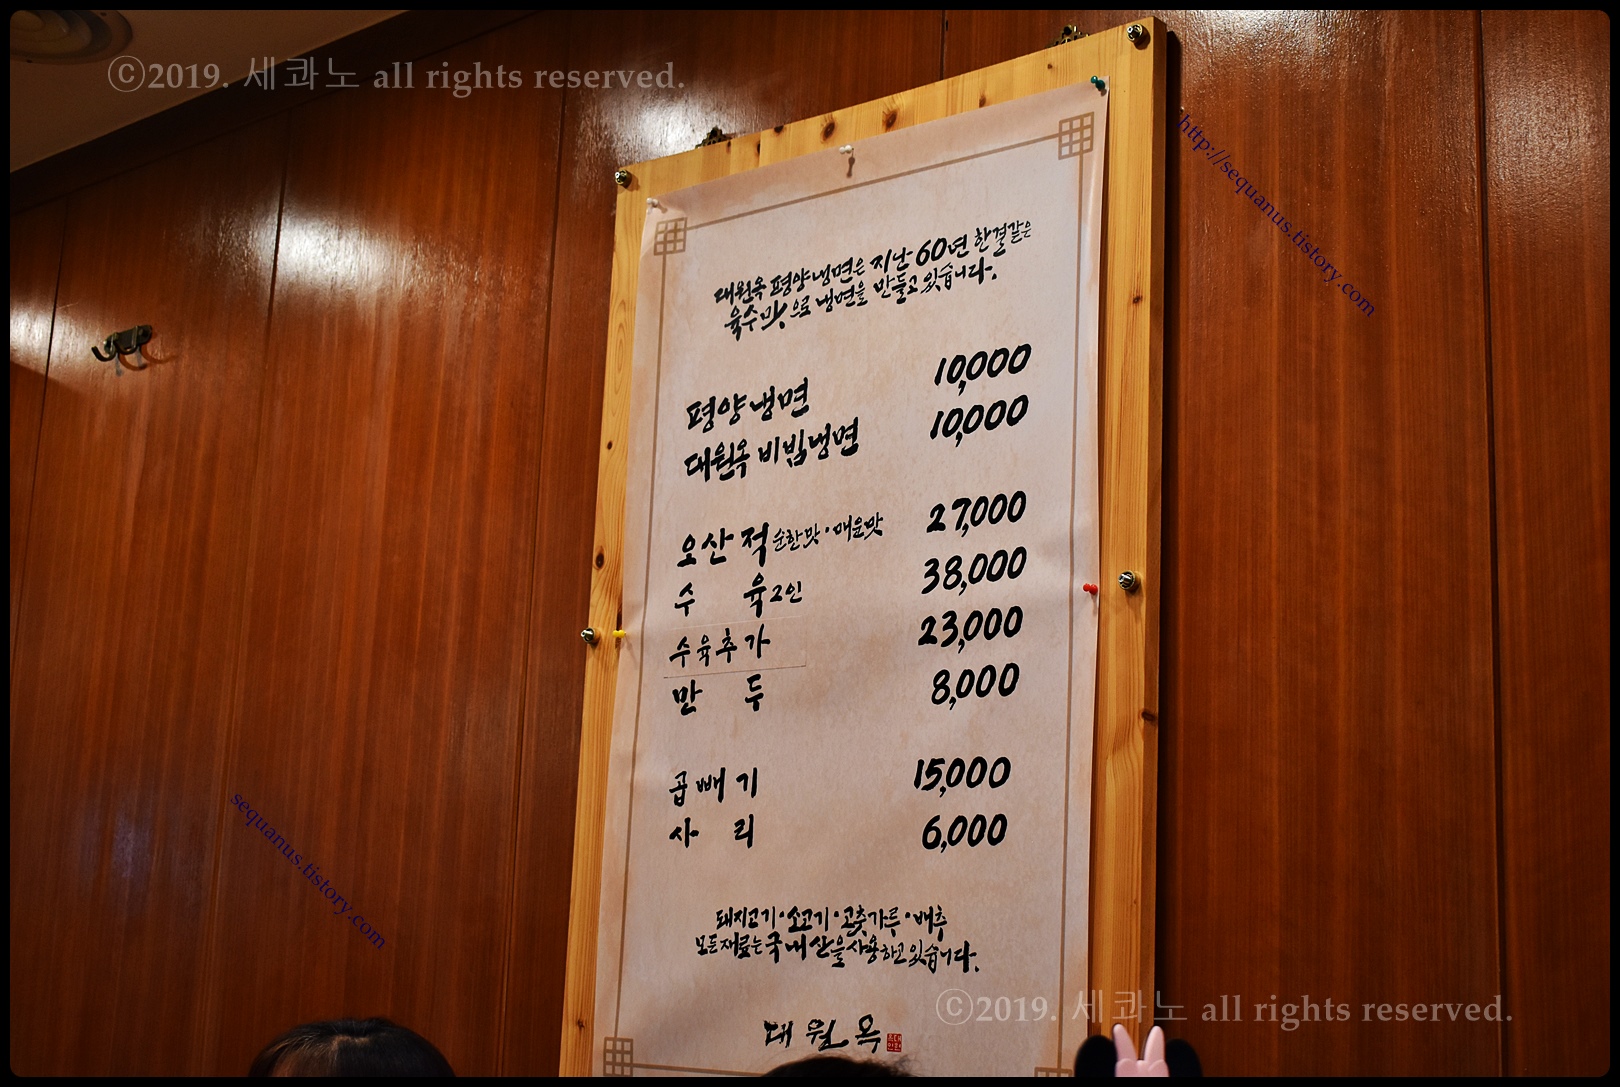 ©2019. 세콰노 all rights reserved.
http://sequanus.tistory.com
대원옥 평양냉면은 지난 60년 한결같은
육수맛으로 냉면을 만들고 있습니다.
평양냉면 10,000
대원옥 비빔냉면 10,000
오산적 순한맛·매운맛 27,000
수 육 2인 38,000
수육추가 23,000
만 두 8,000
곱빼기 15,000
사 리 6,000
sequanus.tistory.com
돼지고기·소고기·고춧가루·배추
모든재료는 국내산을 사용하고있습니다.
대원옥
©2019. 세콰노 all rights reserved.